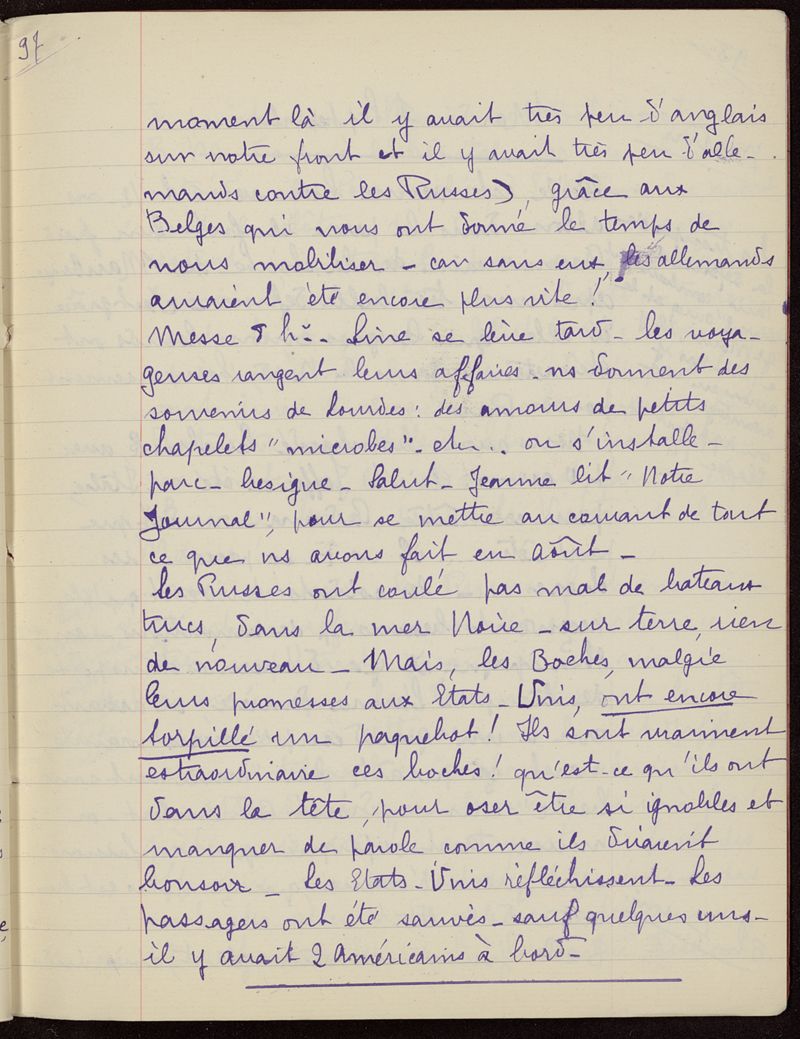 97
moment là il y avait très peu d'anglais
sur notre front et il y avait très peu d'alle-
mands contre les Russes), grâce aux
Belges qui nous ont donné le temps de
nous mobiliser - car sans eux, les allemands
auraient été encore plus vite !
Messe 8 h. - Line se lève tard - les voya-
geuses rangent leurs affaires - ns donnent des
souvenirs de Lourdes : des amours de petits
chapelets "microbes" - etc .. on s'installe -
parc - besigue - Salut - Jeanne lit "Notre
Journal", pour se mettre au courant de tout
ce que ns avons fait en Août -
Les Russes ont coulé pas mal de bateaux
turcs, dans la mer Noire - sur terre, rien
de nouveau - Mais, les Boches, malgré
leurs promesses aux Etats-Unis, ont encore
torpillé un paquebot ! Ils sont vraiment
extraordinaire ces boches ! qu'est-ce qu'ils ont
dans la tête, pour oser être si ignobles et
manquer de parole comme ils diraient
bonsoir - Les Etats-Unis réfléchissent - Les
passagers ont été sauvés - sauf quelques uns -
il y avait 2 Américains à bord -